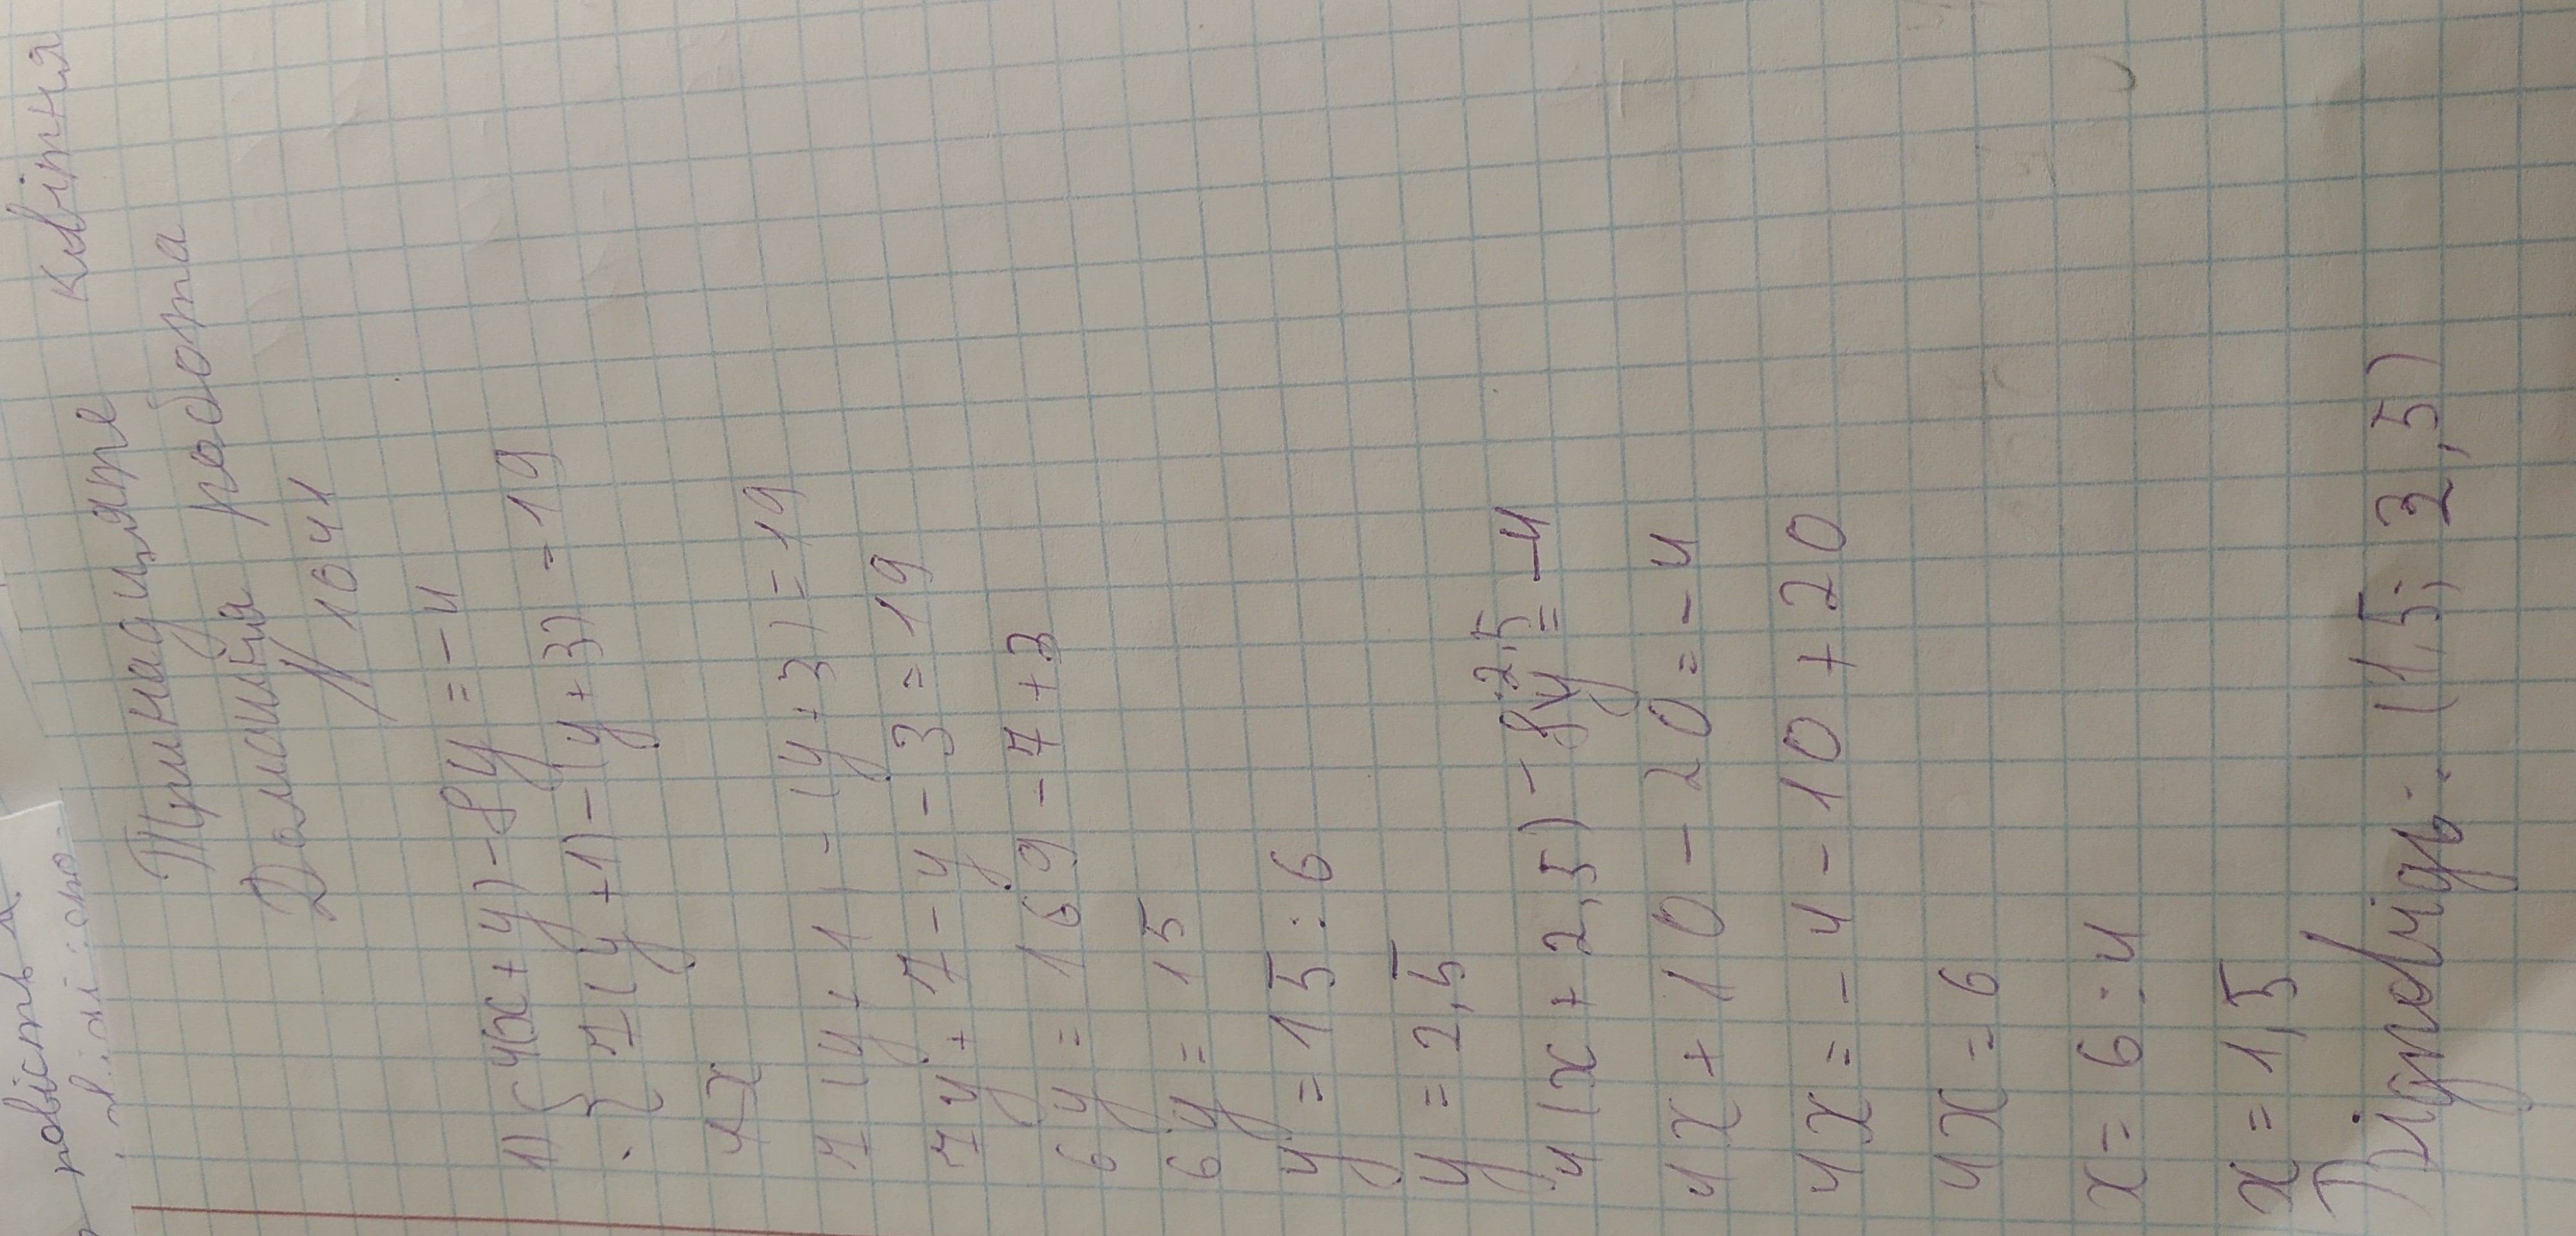 Тринадцяте квітня
Домашня робота
№ 1041
1) { 4(x + y) - 8y = - 4
{ 7(y + 1) - (y + 3) = 19
4x
7(y + 1) - (y + 3) = 19
7y + 7 - y - 3 = 19
6y = 169 - 7 + 3
6y = 15
y = 15 : 6
y = 2,5
4(x + 2,5) - 8y·2,5 = -4
4x + 10 - 20 = - 4
4x = - 4 - 10 + 20
4x = 6
x = 6 : 4
x = 1,5
Відповідь: (1,5; 2,5)